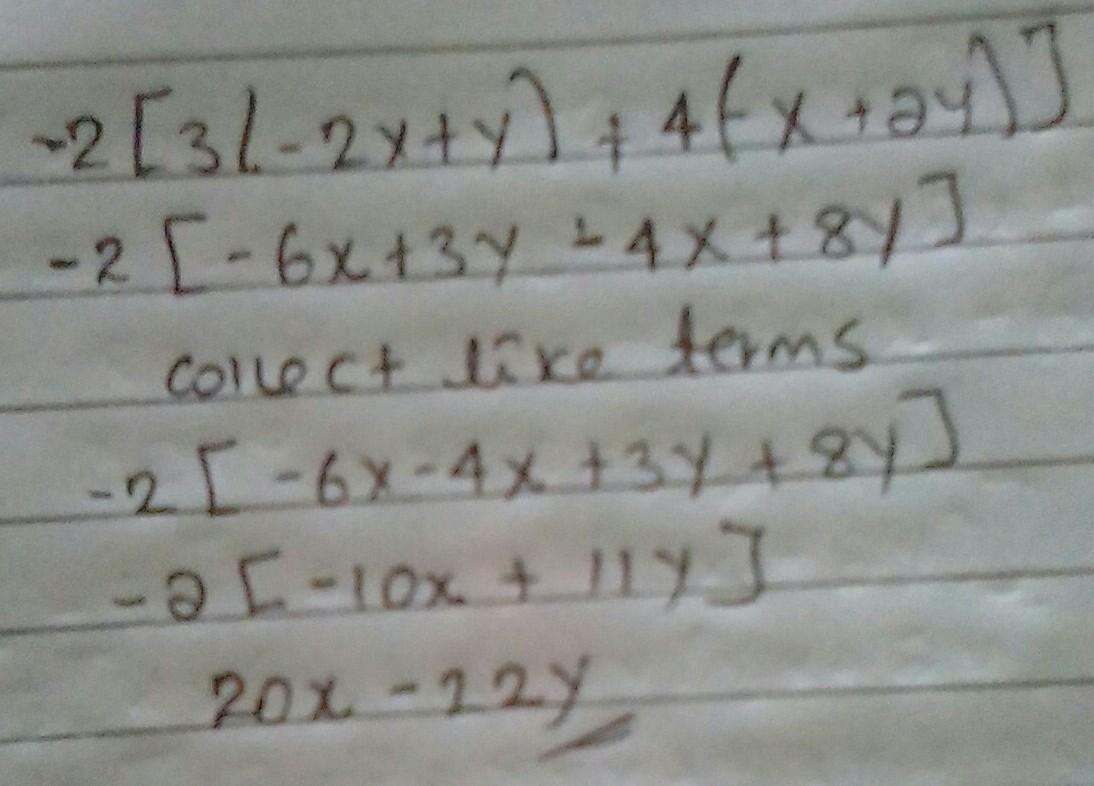 -2[3(-2x+y)+4(-x+2y)]
-2[-6x+3y-4x+8y]
collect like terms
-2[-6x-4x+3y+8y]
-2[-10x+11y]
20x-22y